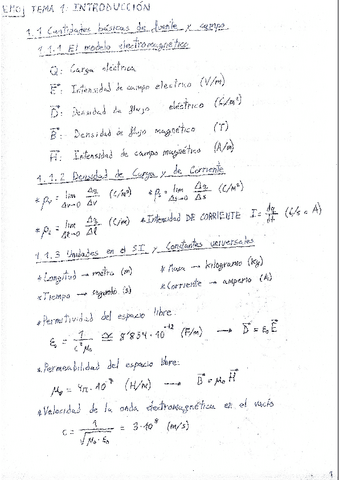 EMO] TEMA 1: INTRODUCCIÓN
1.1 Cantidades básicas de fuente y campo
1.1.1 El modelo electromagnético
Q: Carga eléctrica
E⃗: Intensidad de campo eléctrico (V/m)
D⃗: Densidad de flujo eléctrico (C/m²)
B⃗: Densidad de flujo magnético (T)
H⃗: Intensidad de campo magnético (A/m)
1.1.2 Densidad de Carga y de Corriente
* ρv = lim Δv→0 Δq/Δv (C/m³) * ρs = lim Δs→0 Δq/Δs (C/m²)
* ρℓ = lim Δℓ→0 Δq/Δℓ (C/m) * Intensidad DE CORRIENTE I = dq/dt (C/s o A)
1.1.3 Unidades en el S.I y Constantes universales
* Longitud → metro (m) * Masa → kilogramo (Kg)
* Tiempo → segundo (s) * Corriente → amperio (A)
* Permitividad del espacio libre:
ε₀ = 1/(c²μ₀) ≅ 8'854·10⁻¹² (F/m) → D⃗ = ε₀ E⃗
* Permeabilidad del espacio libre:
μ₀ = 4π·10⁻⁷ (H/m) → B⃗ = μ₀ H⃗
* Velocidad de la onda electromagnética en el vacío
c = 1/√(μ₀·ε₀) = 3·10⁸ (m/s)
1